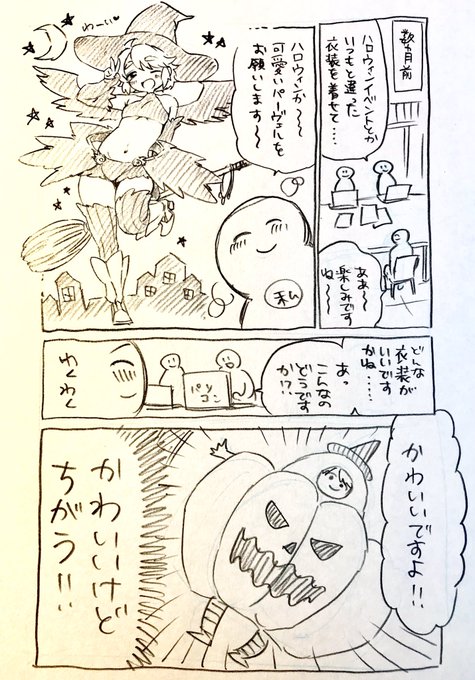 数ヶ月前
ハロウィンイベントとか
いつもと違った
衣装を着せて……
ああ〜
楽しみです
ね〜
ハロウィンか〜
可愛いパーヴェルを
お願いします〜
わーい♥
私
どんな
衣装が
いいです
かね……
あっ
こんなの
どうです
か!?
パソ
コン
わくわく
かわいいですよ!!
かわいいけど
ちがう!!